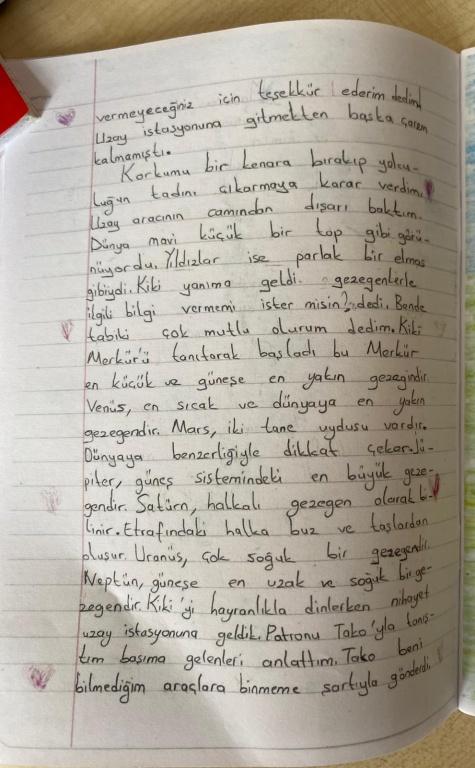 vermeyeceğiniz için teşekkür ederim dedim
Uzay istasyonuna gitmekten başka çarem
kalmamıştı.
Korkumu bir kenara bırakıp yolcu-
luğun tadını çıkarmaya karar verdim.
Uzay aracının camından dışarı baktım.
Dünya mavi küçük bir top gibi görü-
nüyordu. Yıldızlar ise parlak bir elmas
gibiydi. Kiki yanıma geldi gezegenlerle
ilgili bilgi vermemi ister misin? dedi. Bende
tabiki çok mutlu olurum dedim. Kiki
Merkür'ü tanıtarak başladı bu Merkür
en küçük ve güneşe en yakın gezegindir.
Venüs, en sıcak ve dünyaya en yakın
gezegendir. Mars, iki tane uydusu vardır.
Dünyaya benzerliğiyle dikkat çeker. Jü-
piter, güneş sistemindeki en büyük geze-
gendir. Satürn, halkalı gezegen olarak bi-
linir. Etrafındaki halka buz ve taşlardan
oluşur. Uranüs, çok soğuk bir gezegendir.
Neptün, güneşe en uzak ve soğuk bir ge-
zegendir. Kiki'yi hayranlıkla dinlerken nihayet
uzay istasyonuna geldik. Patronu Tako'yla tanış-
tım başıma gelenleri anlattım. Tako beni
bilmediğim araçlara binmeme şartıyla gönderdi.